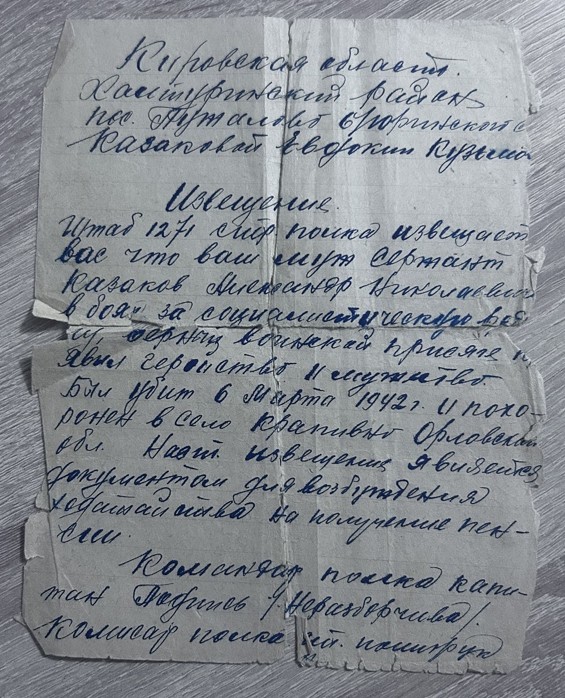 Кировская область.
Халтуринский район
пос. Пужалово
Казаковой Евдокии Кузьмо
Извещение.
Штаб 1271 стр полка извещает
вас что ваш муж сержант
Казаков Александр Николаевич
в боях за социалистическую
верный воинской присяге
явил геройство и мужество.
Был убит 6 Марта 1942 г. и похо-
ронен в село Крапивно Орловской
обл. Наст. извещение является
документом для возбуждения
ходатайства на получение пен-
сии.
Командир полка капи-
тан Подпись /.Неразборчива/.
Комисар полка ст. политрук